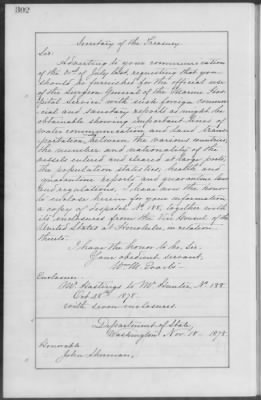 302
Secretary of the Treasury.
Sir:
Adverting to your communication
of the of July last, requesting that you
should be furnished for the official use
of the Surgeon General of the Marine Hos
pital Service with such foreign commer
cial and sanitary reports as might be
obtainable showing important lines of
water communication and land trans
portation, between the various countries,
the number and nationality of the
vessels entered and cleared at large ports,
the population statistics, health and
quarantine reports and quarantine laws
and regulations, I have now the honor
to enclose herein for your information
a copy of despatch No. 188, together with
its enclosures from the Vice Consul of the
United States at Honolulu, in relation
thereto.
I have the honor to be, Sir,
Your obedient servant,
Wm. M. Evarts
Enclosure:
Mr. Hastings to Mr. Hunter, No. 188
Oct. 28th 1878.
with seven enclosures.
Department of State,
Washington, Nov. 18 1878.
Honorable
John Sherman,